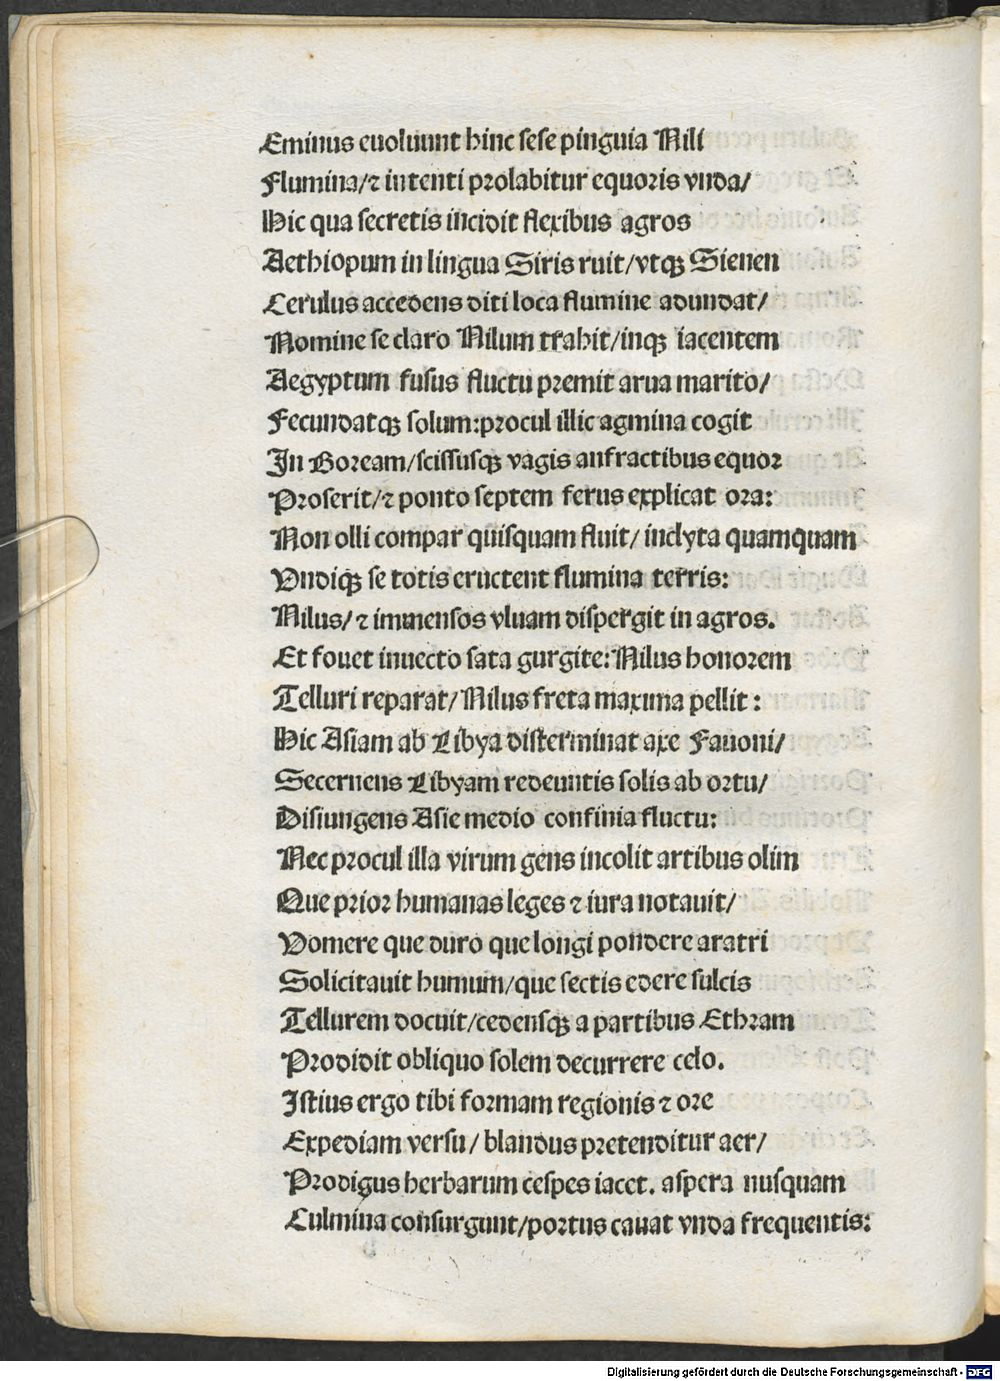 Eminus euoluunt hinc sese pinguia Nili
Flumina/⁊ intenti prolabitur equoris vnda/
Hic qua secretis incidit flexibus agros
Aethiopum in lingua Siris ruit/vtqꝫ Sienen
Cerulus accedens diti loca flumine adundat/
Nomine se claro Nilum trahit/inqꝫ iacentem
Aegyptum fusus fluctu premit arua marito/
Fecundatqꝫ solum:procul illic agmina cogit
In Boream/scissusqꝫ vagis anfractibus equor
Proserit/⁊ ponto septem ferus explicat ora:
Non olli compar quisquam fluit/ inclyta quamquam
Vndiqꝫ se totis eructent flumina terris:
Nilus/⁊ immensos vluam dispergit in agros.
Et fouet inuecto sata gurgite:Nilus honorem
Telluri reparat/Nilus freta maxima pellit:
Hic Asiam ab Libya disterminat axe Fauoni/
Secernens Libyam redeuntis solis ab ortu/
Disiungens Asie medio confinia fluctu:
Nec procul illa virum gens incolit artibus olim
Que prior humanas leges ⁊ iura notauit/
Vomere que duro que longi pondere aratri
Solicitauit humum/que sectis edere sulcis
Tellurem docuit/cedensqꝫ a partibus Ethram
Prodidit obliquo solem decurrere celo.
Istius ergo tibi formam regionis ⁊ ore
Expediam versu/ blandus pretenditur aer/
Prodigus herbarum cespes iacet. aspera nusquam
Culmina consurgunt/portus cauat vnda frequentis:
Digitalisierung gefördert durch die Deutsche Forschungsgemeinschaft - DFG